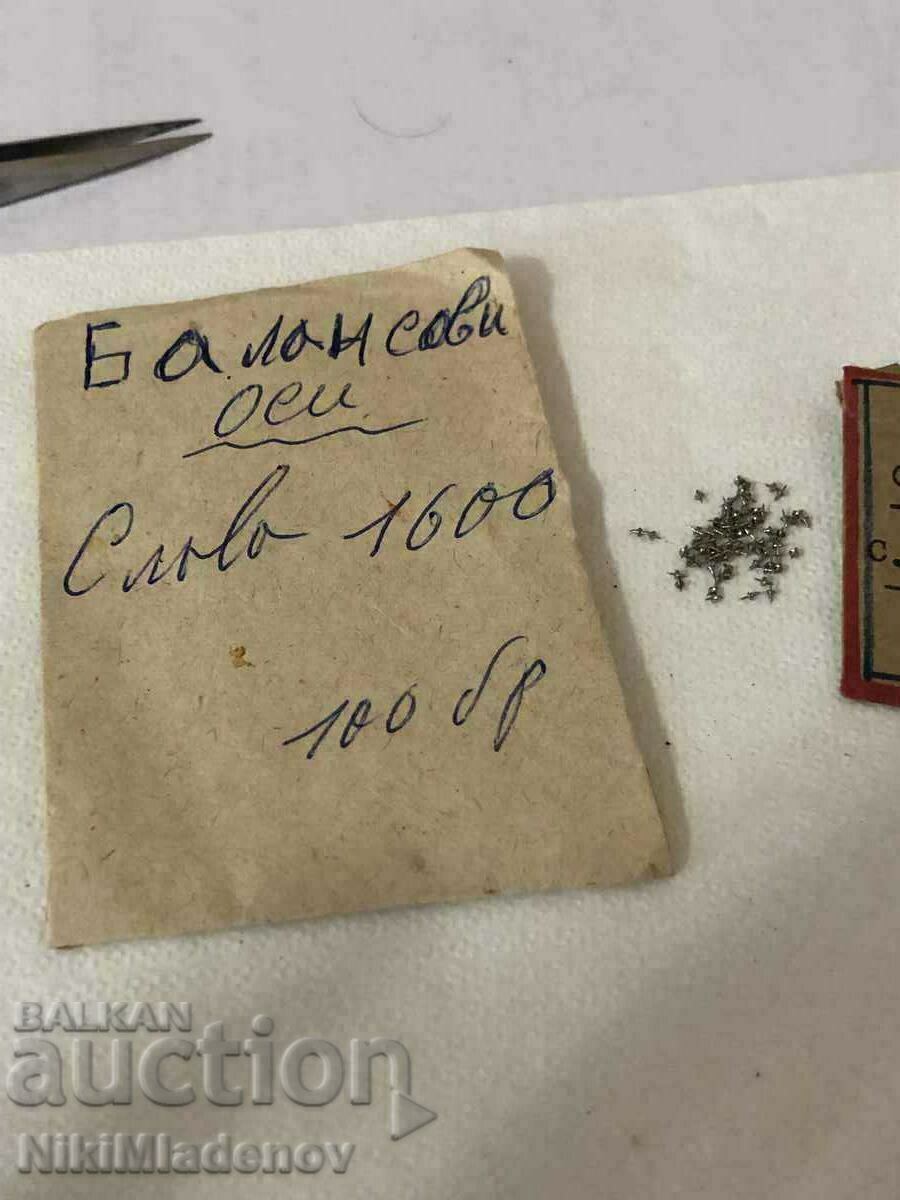 Балансови
оси
Слава 1600
100 бр
с.
BALKAN
auction
NikiMladenov